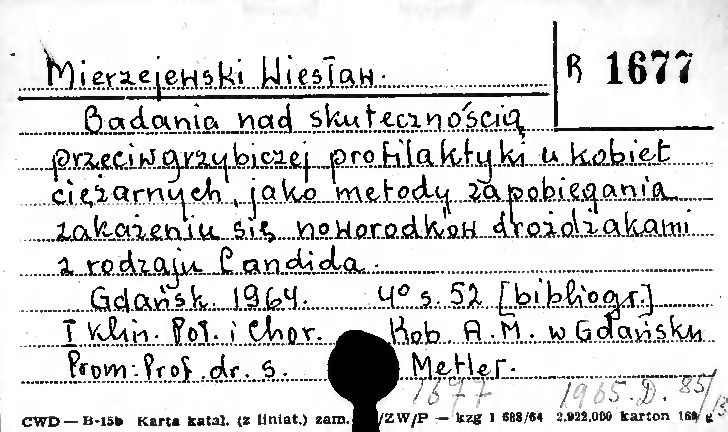 Mierzejewski Wiesław. R 1677
Badania nad skutecznością
przeciwgrzybiczej profilaktyki u kobiet
ciężarnych, jako metody zapobiegania
zakażeniu się noworodków drożdżakami
z rodzaju Candida.
Gdańsk. 1964. 4° s. 52 [bibliogr.]
I Klin. Poł. i Chor. Kob. A.M. w Gdańsku
Prom: Prof. dr. S. Metler.
1677 1965. D. 85/
CWD — B-15b Karta katal. (z liniat.) zam. /ZW/P — kzg 1 688/64 2.922.000 karton